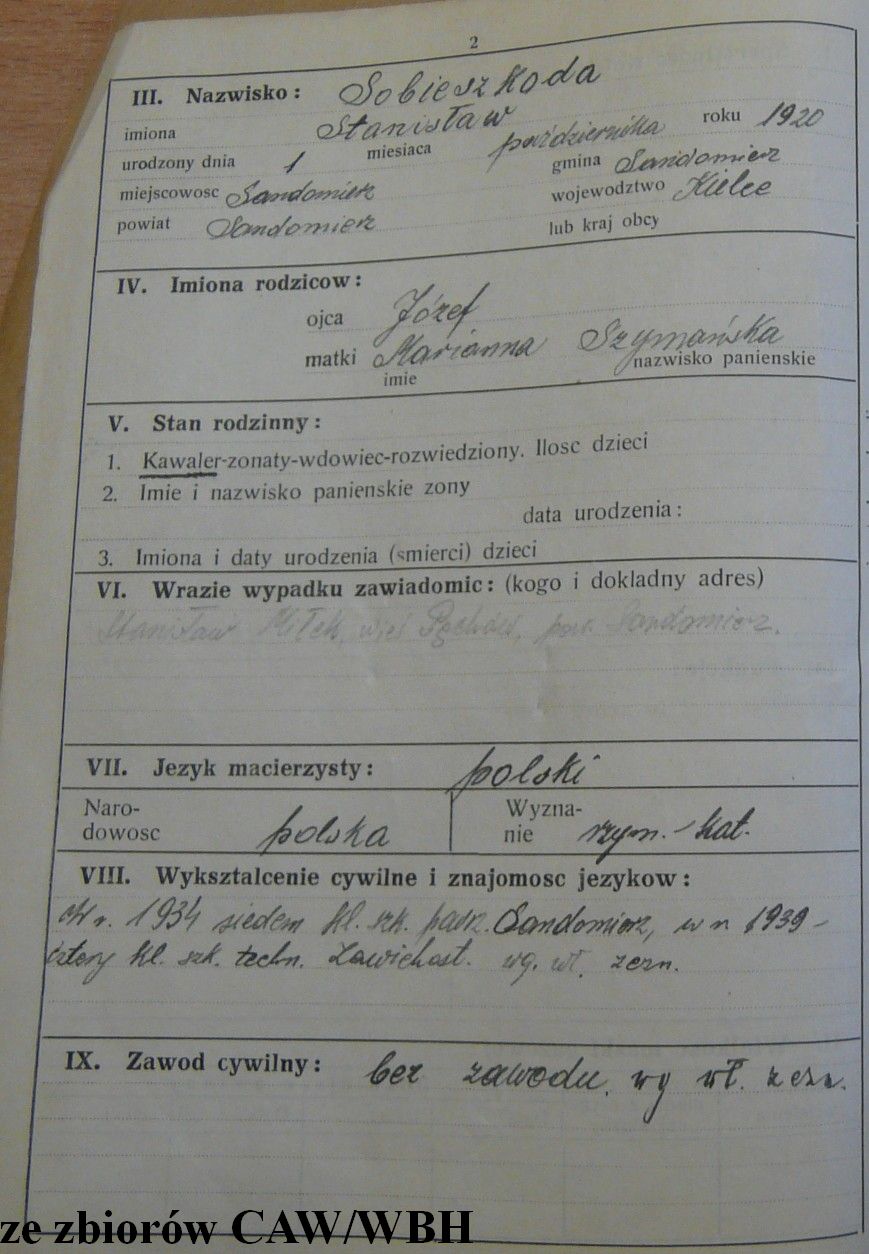 2
III. Nazwisko: Sobieszkoda
imiona Stanisław
urodzony dnia 1 miesiaca października roku 1920
miejscowosc Sandomierz gmina Sandomierz
powiat Sandomierz wojewodztwo Kielce
lub kraj obcy
IV. Imiona rodzicow:
ojca Józef
matki Marianna Szymańska
imie nazwisko panienskie
V. Stan rodzinny:
1. Kawaler-zonaty-wdowiec-rozwiedziony. Ilosc dzieci
2. Imie i nazwisko panienskie zony
data urodzenia:
3. Imiona i daty urodzenia (smierci) dzieci
VI. Wrazie wypadku zawiadomic: (kogo i dokladny adres)
Stanisław Miłek, wieś pow. Sandomierz.
VII. Jezyk macierzysty: polski
Naro-
dowosc polska
Wyzna-
nie rzym.-kat.
VIII. Wyksztalcenie cywilne i znajomosc jezykow:
W r. 1934 siedem kl. szk. Sandomierz, w r 1939 -
cztery kl. szk. techn. Zawichost. wg. wł. zezn.
IX. Zawod cywilny: bez zawodu, wg wł. zezn.
ze zbiorów CAW/WBH